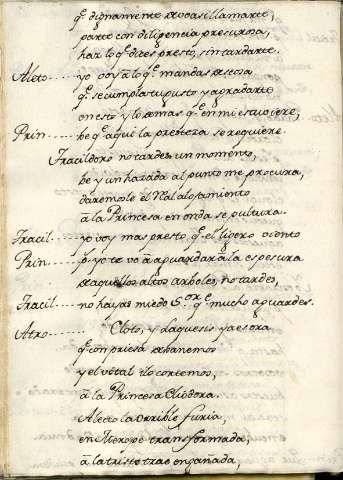 q̃ dignamente pocas i llamarte,
parte con diligencia presurosa,
haz lo q̃ dizes presto, sin tardarte.
Aleto---- yo voy a lo q̃ mandas
q̃ se cumpla tu gusto y agradarte
en esto y lo demas q̃ en mi estuviere,
Prin---- be q̃ aqui la presteza se requiere
Fracildoro no tardes un momento,
be y un hazada al punto me procura,
daremosle el Real alojamiento
a la Princesa en onda sepultura.
Fracil---- yo voy mas presto q̃ el ligero viento
Prin---- yo te voi a aguardar a la espesura
de aquellos altos arboles, no tardes,
Fracil---- no hayas miedo S.or q̃ mucho aguardes.
Atro------ Cloto, y Laquesis ya es ora
q̃ con priesa
y el vital ilo cortemos,
a la Princesa Cliodora.
Alecto la orrible furia
en Merope transformada,
a la triste trae engañada,